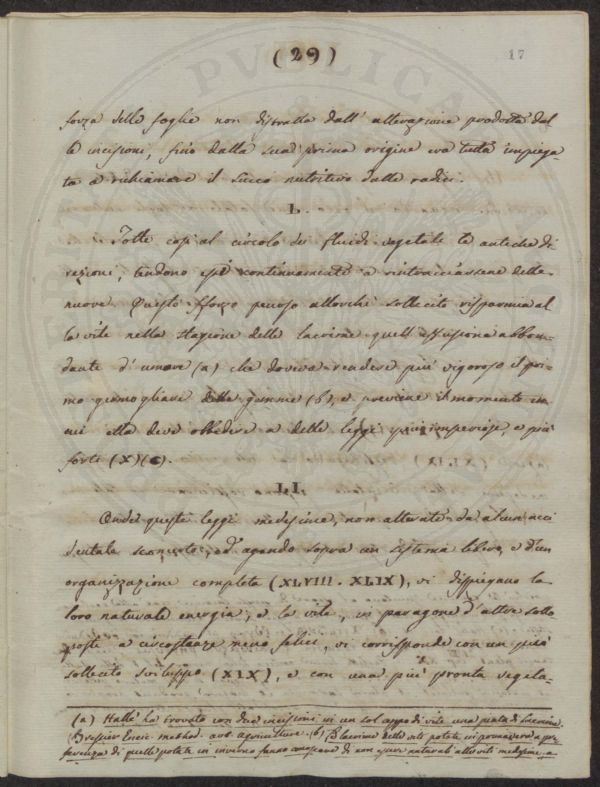 (29)
17
forza delle foglie non distratta dall' alterazione prodotta dal
le incisioni, fino dalla sua prima origine era tutta impiega-
ta a richiamare il succo nutritivo dalle radici.
L.
Tolte così al circolo dei fluidi vegetali le antiche di
rezioni, tendono essi continuamente a rintracciarsene delle
nuove. Questo sforzo penoso allorchè sollecito risparmia al
la vite nella stagione delle lacrime quell' effusione abbon-
dante d' umore (a) che doveva rendere più vigoroso il pri-
mo germogliare delle gemme (b), e previene il momento in
cui ella deve obbedire a delle leggi più imperiose, e più
forti (X)(c).
LI.
Onde queste leggi medesime, non alterate da alcun acci
dentale sconcerto, ed agendo sopra un sistema libero, e d'un
organizzazione completa (XLVIII. XLIX), vi dispiegano la
loro naturale energia, e la vite, in paragone d' altre sotto
poste a circostanze meno felici, vi corrisponde con un più
sollecito sviluppo (XIX), e con una più pronta vegeta-
(a) Hallé ha trovato con due incisioni in un sol di vite una
Encic. method. art. agriculture. (b) Le lacrime delle viti potate in primavera a pre
ferenza di quelle potate in inverno fanno di non essere naturali alle viti medesime, a